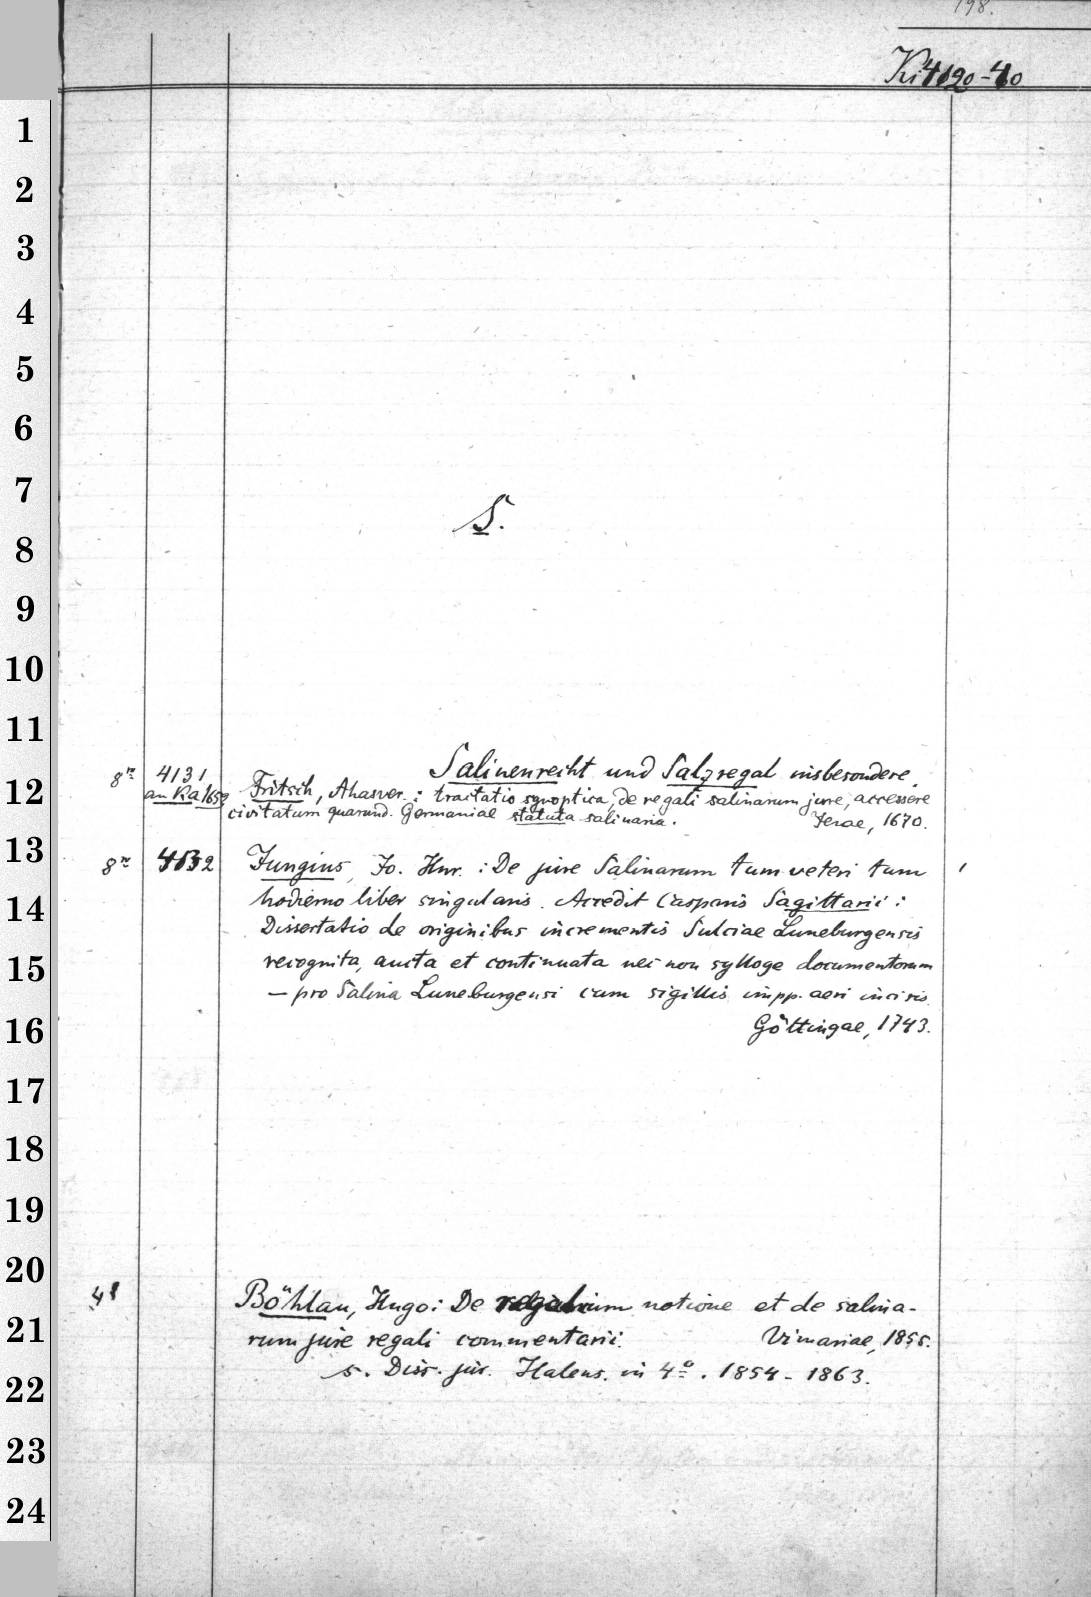 198.
Ki 4120-40
1
2
3
4
5
6
7
S.
8
9
10
11
Salinenrecht und Salzregal insbesondere.
8° 4131 Fritsch, Ahasver.: tractatio synoptica, de regali salinarum jure, accessere
12 an Ka 1659 civitatum quarund. Germaniae statuta salinaria. Jenae, 1670.
13
8° 4132 Jungius, Jo. Hnr.: De jure Salinarum tum veteri tum
14 hodierno liber singularis. Accedit Casparis Sagittarii:
Dissertatio de originibus incrementis Sulciae Luneburgensis
15 recognita, aucta et continuata nec non sylloge documentorum
— pro Salina Luneburgensi cum sigillis impp. aeri incisis.
16 Göttingae, 1743.
17
18
19
20
4° Böhlau, Hugo: De regalium notione et de salina-
21 rum jure regali commentarii. Vimariae, 1855.
22 s. Diss. jur. Halens. in 4°. 1854-1863.
23
24